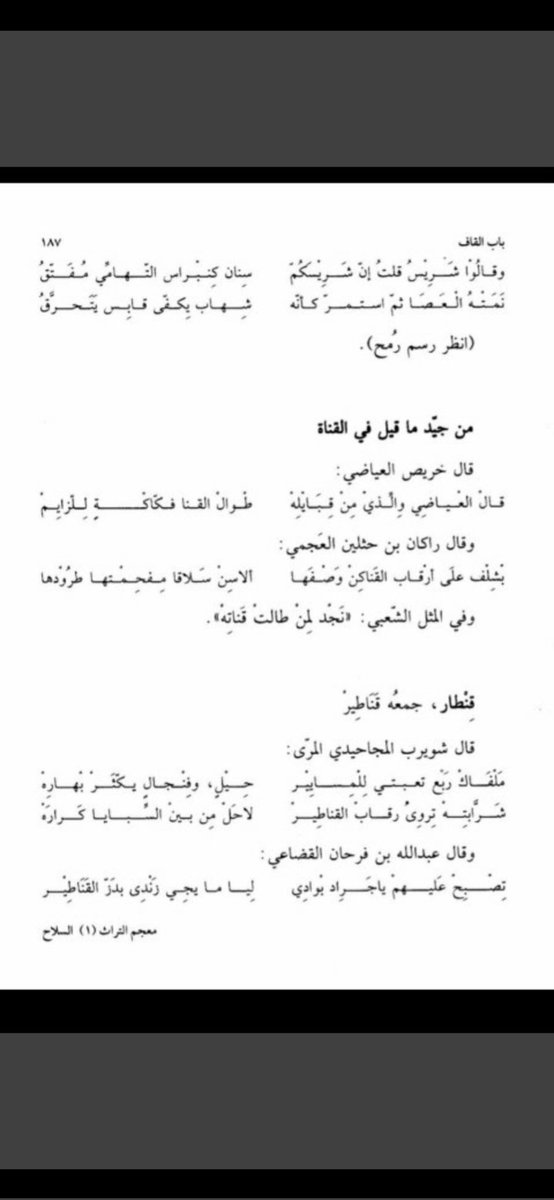 باب القاف ١٨٧
وقالُوْا شَرِيْسُ قلتُ إنّ شَرِيْسَكُمْ سِنان كنِبْراس النّهامُي مُفَتّقُ
نَمَتْهُ الْعَصَا ثمّ استمرّ كأنّه شِهاب بِكفّى قابِس يَتَحرَّقُ
(انظر رسم رُمح).
من جيّد ما قيل في القناة
قال خريص العياضي:
قالْ الْعْياضي والّذيْ مِنْ قِبَايْلِهْ طْوالْ القنا فكّاكْةٍ لِلّزايِمْ
وقال راكان بن حثلين العَجمي:
بْشلْف علَى أرْقاب القَناكنْ وَصْفَها الاسِنْ سَلاقا مِفحِمْتها طرُوْدها
وفي المثل الشّعبي: «نَجْد لمنْ طالتْ قَناتِهْ».
قِنْطار، جمعُه قَنَاطيرْ
قال شويرب المجاحيدي المرّى:
مَلْفَاكْ رَبْع تعبتي لِلْمِسايِيْر حِيْلٍ، وفنْجالٍ يكَثّرْ بْهارِهْ
شَرّابتِهْ تروىْ رقابْ القناطيرْ لاحَلْ مِن بينْ السِّبايا كَرارَهْ
وقال عبدالله بن فرحان القضاعي:
تِصْبِحْ عَليهمْ ياجَراد بْوادي لِيا ما يجي زَنْدى بدَرّ القَنَاطِيْر
معجم التراث (١) السلاح